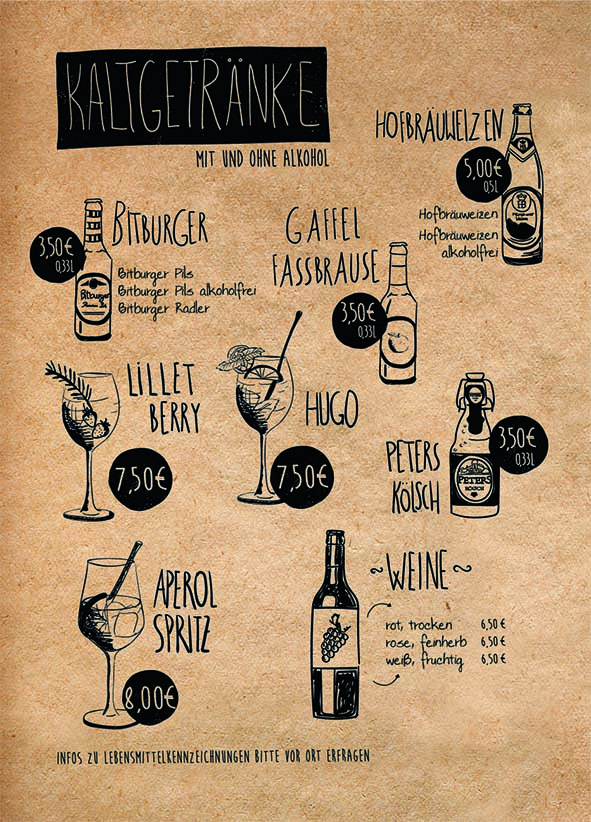 KALTGETRÄNKE
MIT UND OHNE ALKOHOL
HOFBRÄUWEIZEN
5,00€
0,5L
Hofbräuweizen
Hofbräuweizen
alkoholfrei
BITBURGER
3,50€
0,33L
Bitburger
Bitburger Pils
Bitburger Pils alkoholfrei
Bitburger Radler
GAFFEL
FASSBRAUSE
3,50€
0,33L
LILLET
BERRY
7,50€
HUGO
7,50€
PETERS
KÖLSCH
3,50€
0,33L
PETERS
KÖLSCH
APEROL
SPRITZ
8,00€
~WEINE~
rot, trocken 6,50 €
rose, feinherb 6,50 €
weiß, fruchtig 6,50 €
INFOS ZU LEBENSMITTELKENNZEICHNUNGEN BITTE VOR ORT ERFRAGEN